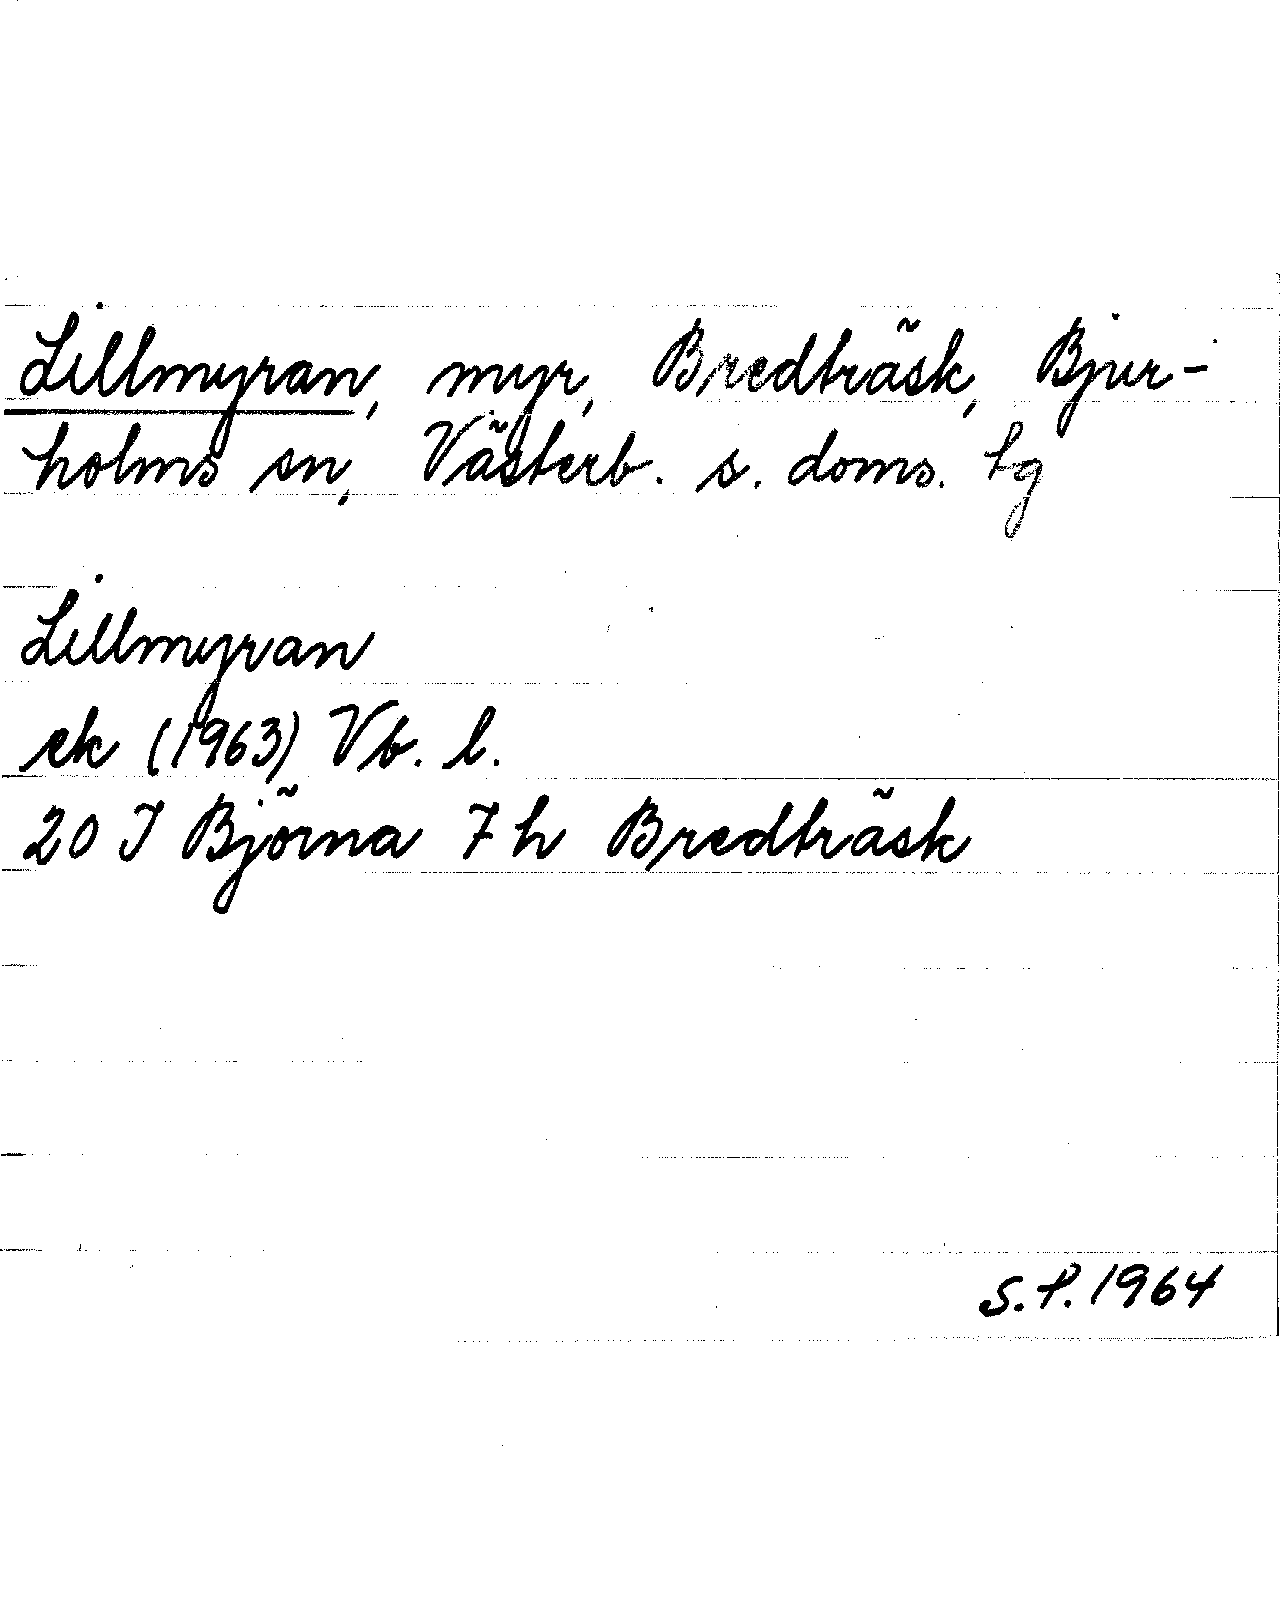 Lillmyran, myr, Bredträsk, Bjur-
holms sn, Västerb. s. doms. Lg
Lillmyran
ek (1963) Vb. l.
20 I Björna 7 h Bredträsk
S.P. 1964